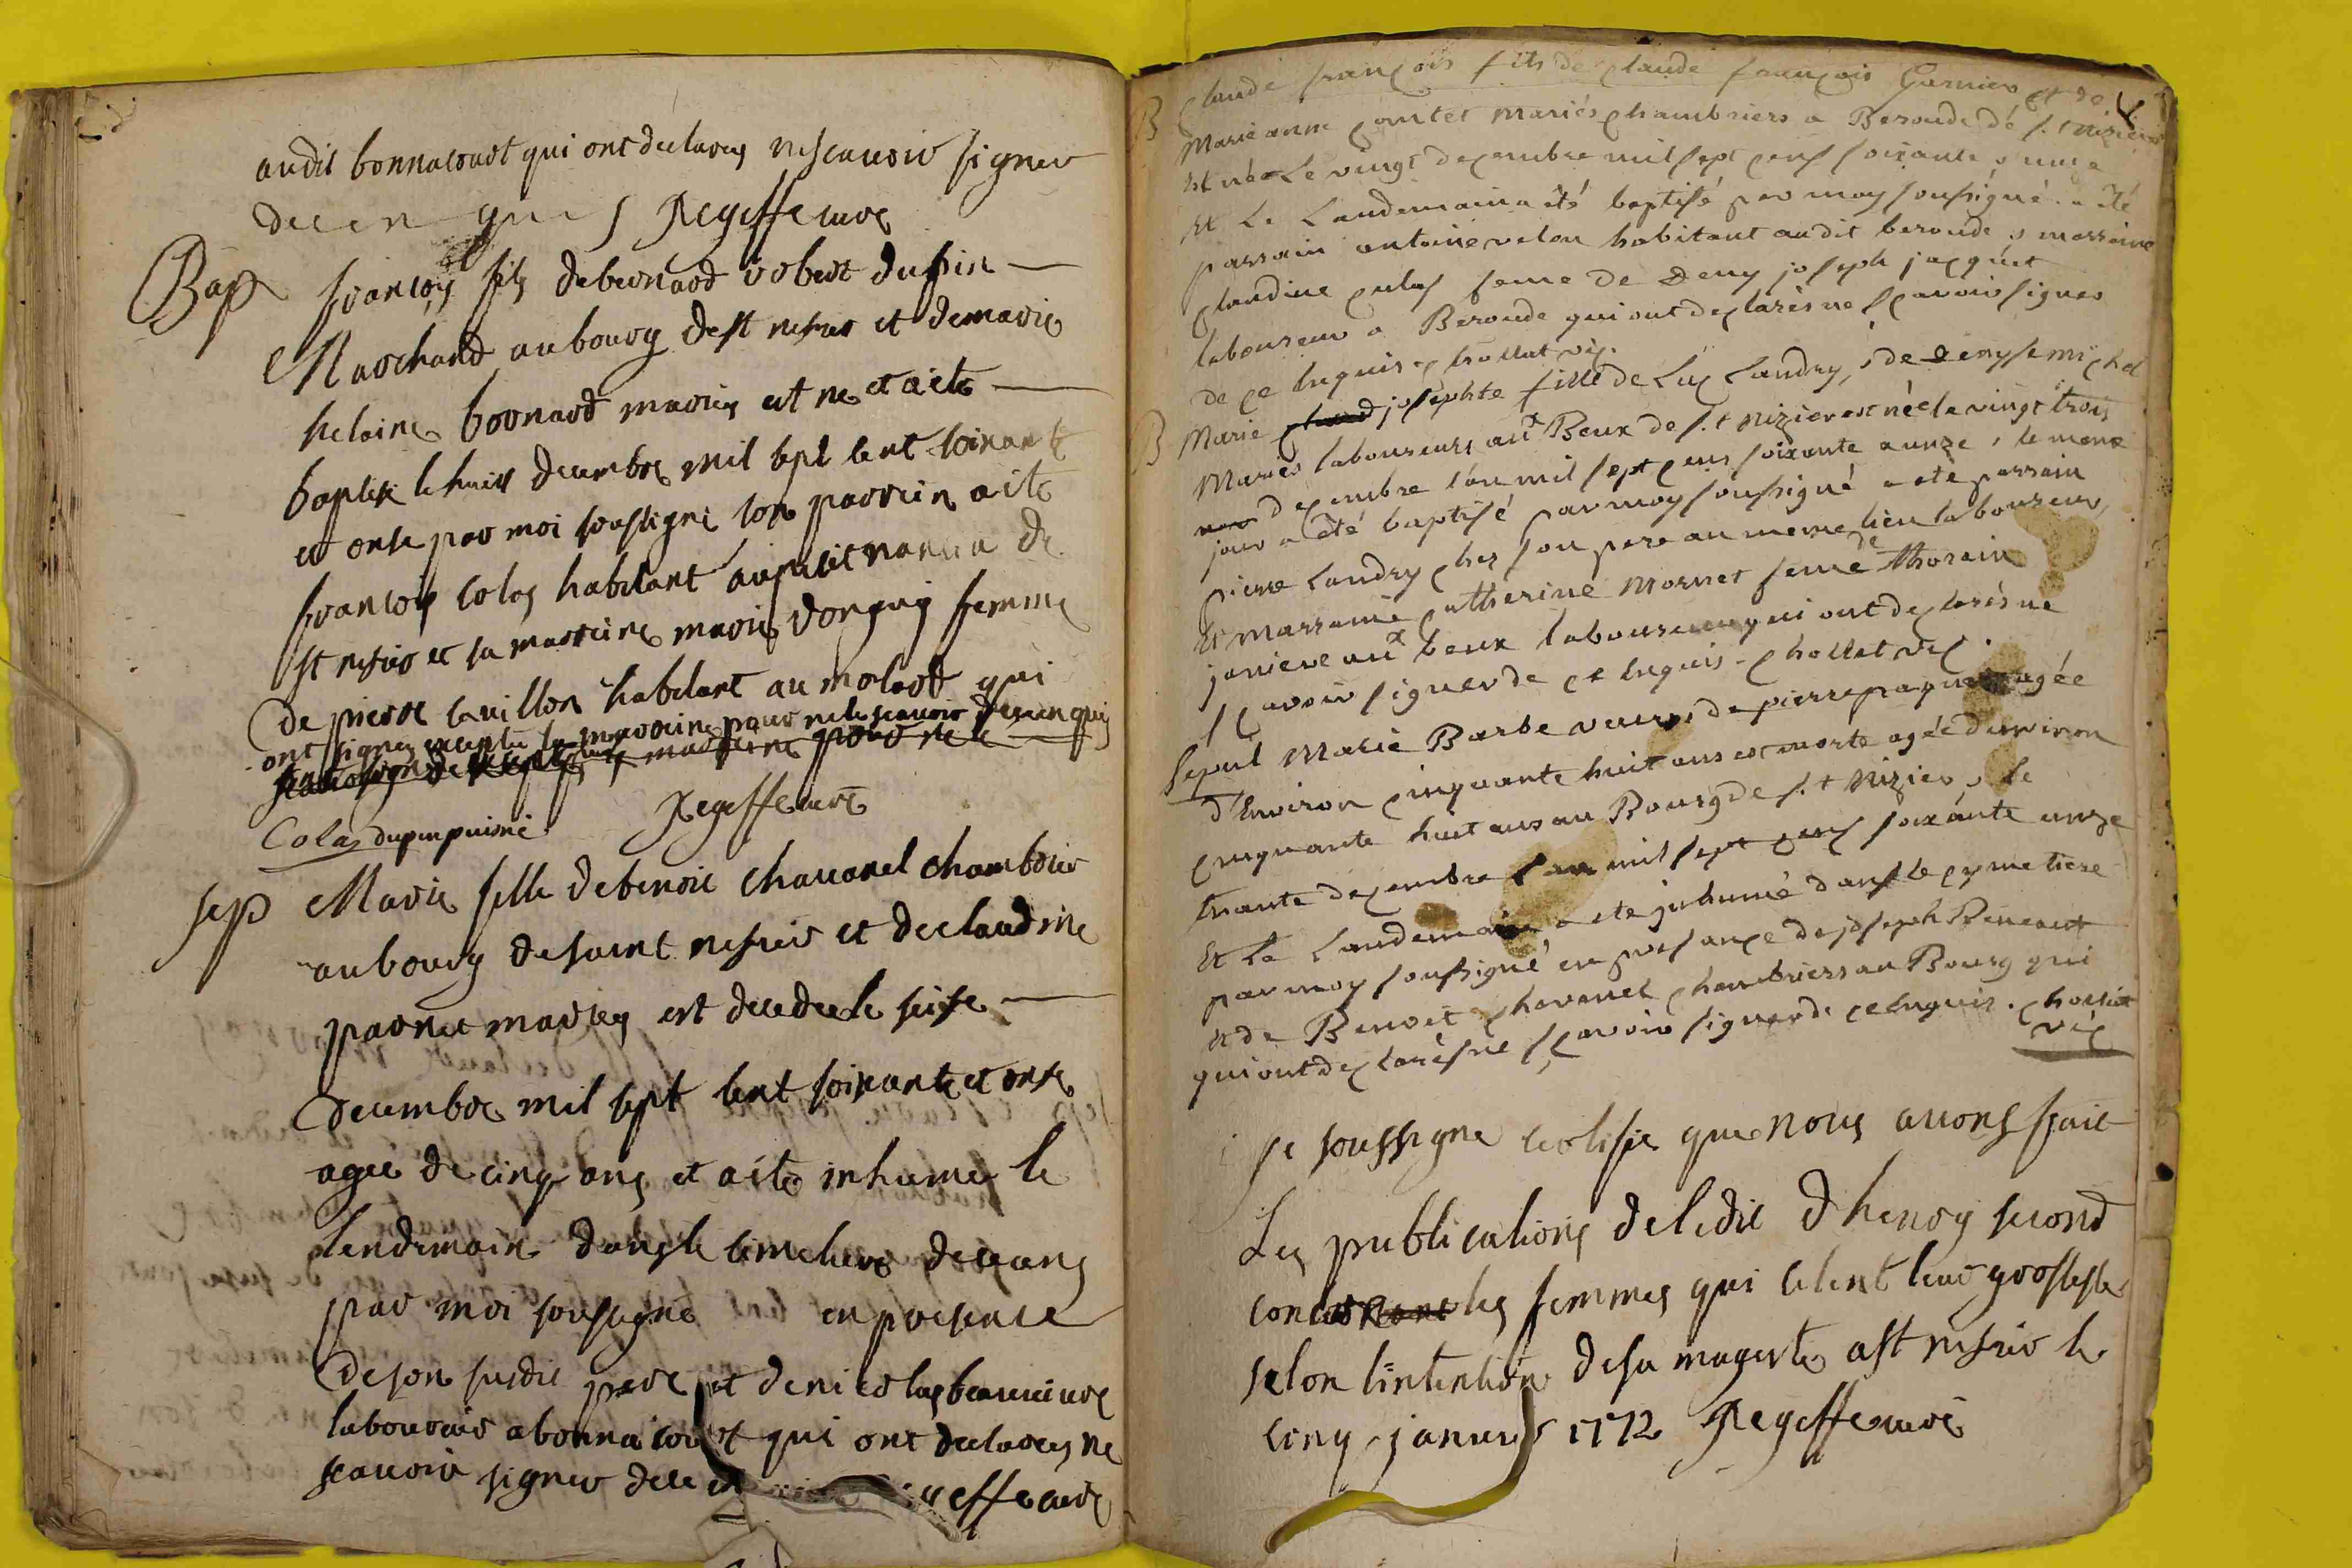 audit bonnacourt qui ont declarés ne scauoir signer
de ce en quis Regeffe curé
Bap françois fils de bernard robert dupin
Marchand au bourg de st nisier et de marie
helaine bornard mariés est né et a été
baptisé le huit decembre mil sept cent soixante
et onse par moi soussigné son parrein a été
françois colas habitant au petit de
st nisier et sa marreine marie donguy femme
de pierre cauillon habitant au molard qui
ont signes excepté la marreine pour ne le scauoir de ce enquis
Colas dupin puisné Regeffe curé
sep Marie fille de benoit chauanel chambrier
au bourg de saint nisier et de claudine
parnet mariés est decedée le seise
decembre mil sept cent soixante et onse
agée de cinq ans et a été inhumée le
lendemain dans le cimetiere de ceans
par moi soussigné en presence
de son susdit pere et de nicolas
laboureur a bonnacourt qui ont declarés ne
scauoir signer de ce en effe curé
B Claude françois fils de claude françois Garnier et de
Marie anne comtet mariés chambriers a Beroude de s.t nizier
est né le vingt decembre mil sept cens soixante et unze
Et Le Landemain a été baptisé par moy soussigné. a été
parrain antoine velon habitant audit beroude et marraine
claudine culas feme de Deny joseph jacquet
laboureur a Beroude qui ont declarés ne scavoir signer
de ce enquis chollat vic.
B Marie claud josephte fille de Luc Landry, et de denyse michel
Mariés laboureurs aux Beux de s.t nizier est née le vingt trois
decembre l'an mil sept cens soixante e unze, le meme
jour a été baptisé par moy soussigné a eté parrain
pierre Landry ches son pere au meme lieu laboureur,
Et marraine catherine Mornet feme de thorain
janieve aux beux laboureur qui ont declarés ne
scavoir signer de ce enquis. chollat vic.
sepul Marie Barbe veuve de pierre agée
d'Environ cinquante huit ans est morte agée d'environ
cinquante huit ans au Bourg de s.t Nizier, le
trante decembre l'an mil sept cens soixante unze
Et Le Landemain a eté inhumé dans le cymetiere
par moy soussigné en presance de joseph
et de Benoit chavanel chambriers au Bourg qui
qui ont declarés ne scavoir signer de ce enquis. chollat
vic
je soussigne certifie que nous auons fait
Les publications de ledit d henry second
les femmes qui celent leur grossesse
selon lintention de sa magesté a st nisier le
cinq januier 1772 Regeffe curé